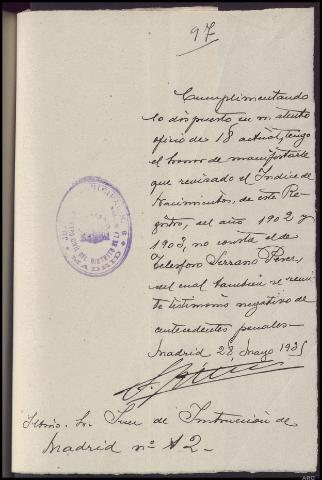 97
Cumplimentando
lo dispuesto en su atento
oficio de 18 actual, tengo
el honor de manifestarle
que revisado el Indice de
Nacimientos, de este Re-
gistro, del año 1902 y
1903, no consta el de
Telesforo Serrano Perez,
del cual también se remi-
te testimonio negativo de
antecedentes penales—
Madrid 22 Mayo 1935
Iltmo. Sr. Juez de Instruccion de
Madrid nº 12-
MADRID